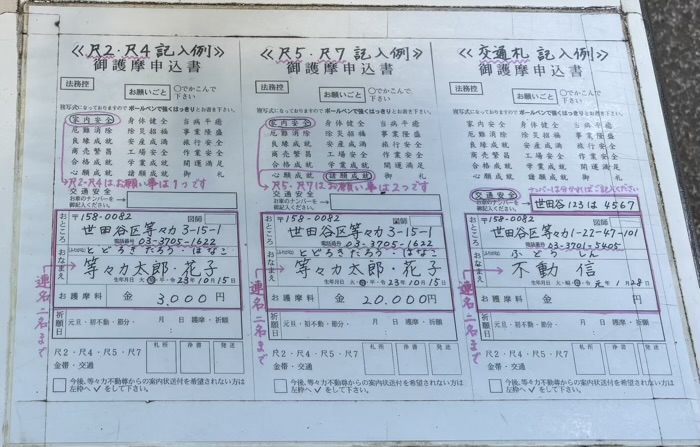 ≪尺2・尺4 記入例≫
御護摩申込書
法務控
お願いごと
○でかこんで下さい
複写式になっておりますのでボールペンで強くはっきりとお書き下さい。
家内安全 身体健全 当病平癒
厄難消除 除災招福 事業隆盛
良縁成就 安産成満 旅行安全
商売繁昌 工場安全 作業安全
合格成就 学業成就 開運満足
心願成就 諸願成就 御札
→尺2・尺4はお願い事は1つです
交通安全
お車のナンバーを御記入ください。→
おところ
〒158-0082 図師
世田谷区等々力3-15-1
電話番号 03-3705-1622
ふりがな とどろきたろう・はなこ
おなまえ
等々力太郎・花子
生年月日 大・昭・平・年 23年10月15日
お護摩料 金 3,000円
祈願日 元旦・初不動・節分・ 月 日 護摩・祈願
尺2・尺4・尺5・尺7
金帯・交通
札所 浄書 発送
今後、等々力不動尊からの案内状送付を希望されない方は
左枠へ✓をして下さい。
連名二名まで
≪尺5・尺7 記入例≫
御護摩申込書
法務控
お願いごと
○でかこんで下さい
複写式になっておりますのでボールペンで強くはっきりとお書き下さい。
家内安全 身体健全 当病平癒
厄難消除 除災招福 事業隆盛
良縁成就 安産成満 旅行安全
商売繁昌 工場安全 作業安全
合格成就 学業成就 開運満足
心願成就 諸願成就 御札
→尺5・尺7はお願い事は2つです
交通安全
お車のナンバーを御記入ください。→
おところ
〒158-0082 図師
世田谷区等々力3-15-1
電話番号 03-3705-1622
ふりがな とどろきたろう・はなこ
おなまえ
等々力太郎・花子
生年月日 23年10月15日
お護摩料 金 20,000円
祈願日 元旦・初不動・節分・ 月 日 護摩・祈願
尺2・尺4・尺5・尺7
金帯・交通
札所 浄書 発送
今後、等々力不動尊からの案内状送付を希望されない方は
左枠へ✓をして下さい。
連名二名まで
≪交通札 記入例≫
御護摩申込書
法務控
お願いごと
○でかこんで下さい
複写式になっておりますのでボールペンで強くはっきりとお書き下さい。
家内安全 身体健全 当病平癒
厄難消除 除災招福 事業隆盛
良縁成就 安産成満 旅行安全
商売繁昌 工場安全 作業安全
合格成就 学業成就 開運満足
心願成就 諸願成就 御札
交通安全
ナンバーは分かればご記入ください
お車のナンバーを御記入ください。→ 世田谷123は4567
おところ
〒158-0082 図師
世田谷区等々力1-22-47-101
電話番号 03-3701-5405
ふりがな ふどう しん
おなまえ
不動 信
生年月日 元年1月28日
お護摩料 金 円
祈願日 元旦・初不動・節分・ 月 日 護摩・祈願
尺2・尺4・尺5・尺7
金帯・交通
札所 浄書 発送
今後、等々力不動尊からの案内状送付を希望されない方は
左枠へ✓をして下さい。
連名二名まで